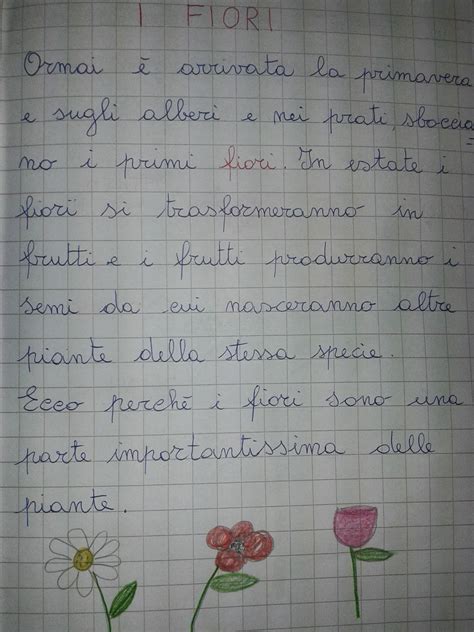 I FIORI
Ormai è arrivata la primavera
e sugli alberi e nei prati, sboccia=
no i primi fiori. In estate i
fiori si trasformeranno in
frutti e i frutti produrranno i
semi da cui nasceranno altre
piante della stessa specie.
Ecco perchè i fiori sono una
parte importantissima delle
piante.